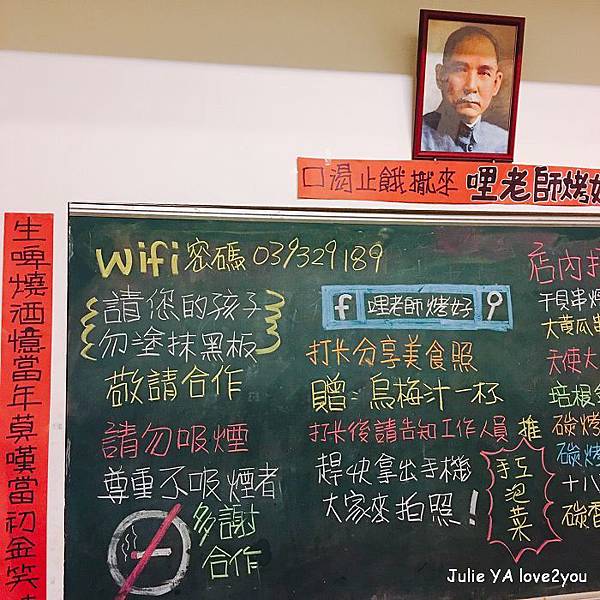 口渴止餓擮來 哩老師烤好
生啤燒酒憶當年莫嘆當初金笑
wifi 密碼 039329189
請您的孩子
勿塗抹黑板
敬請合作
請勿吸煙
尊重不吸煙者
多謝
合作
f 哩老師烤好
打卡分享美食照
贈：烏梅汁一杯
打卡後請告知工作人員
趕快拿出手機
大家來拍照！
推
手工泡菜
店內
干貝串
大黃瓜
天使大
培根
碳烤
碳烤
十八
碳香
Julie YA love2you